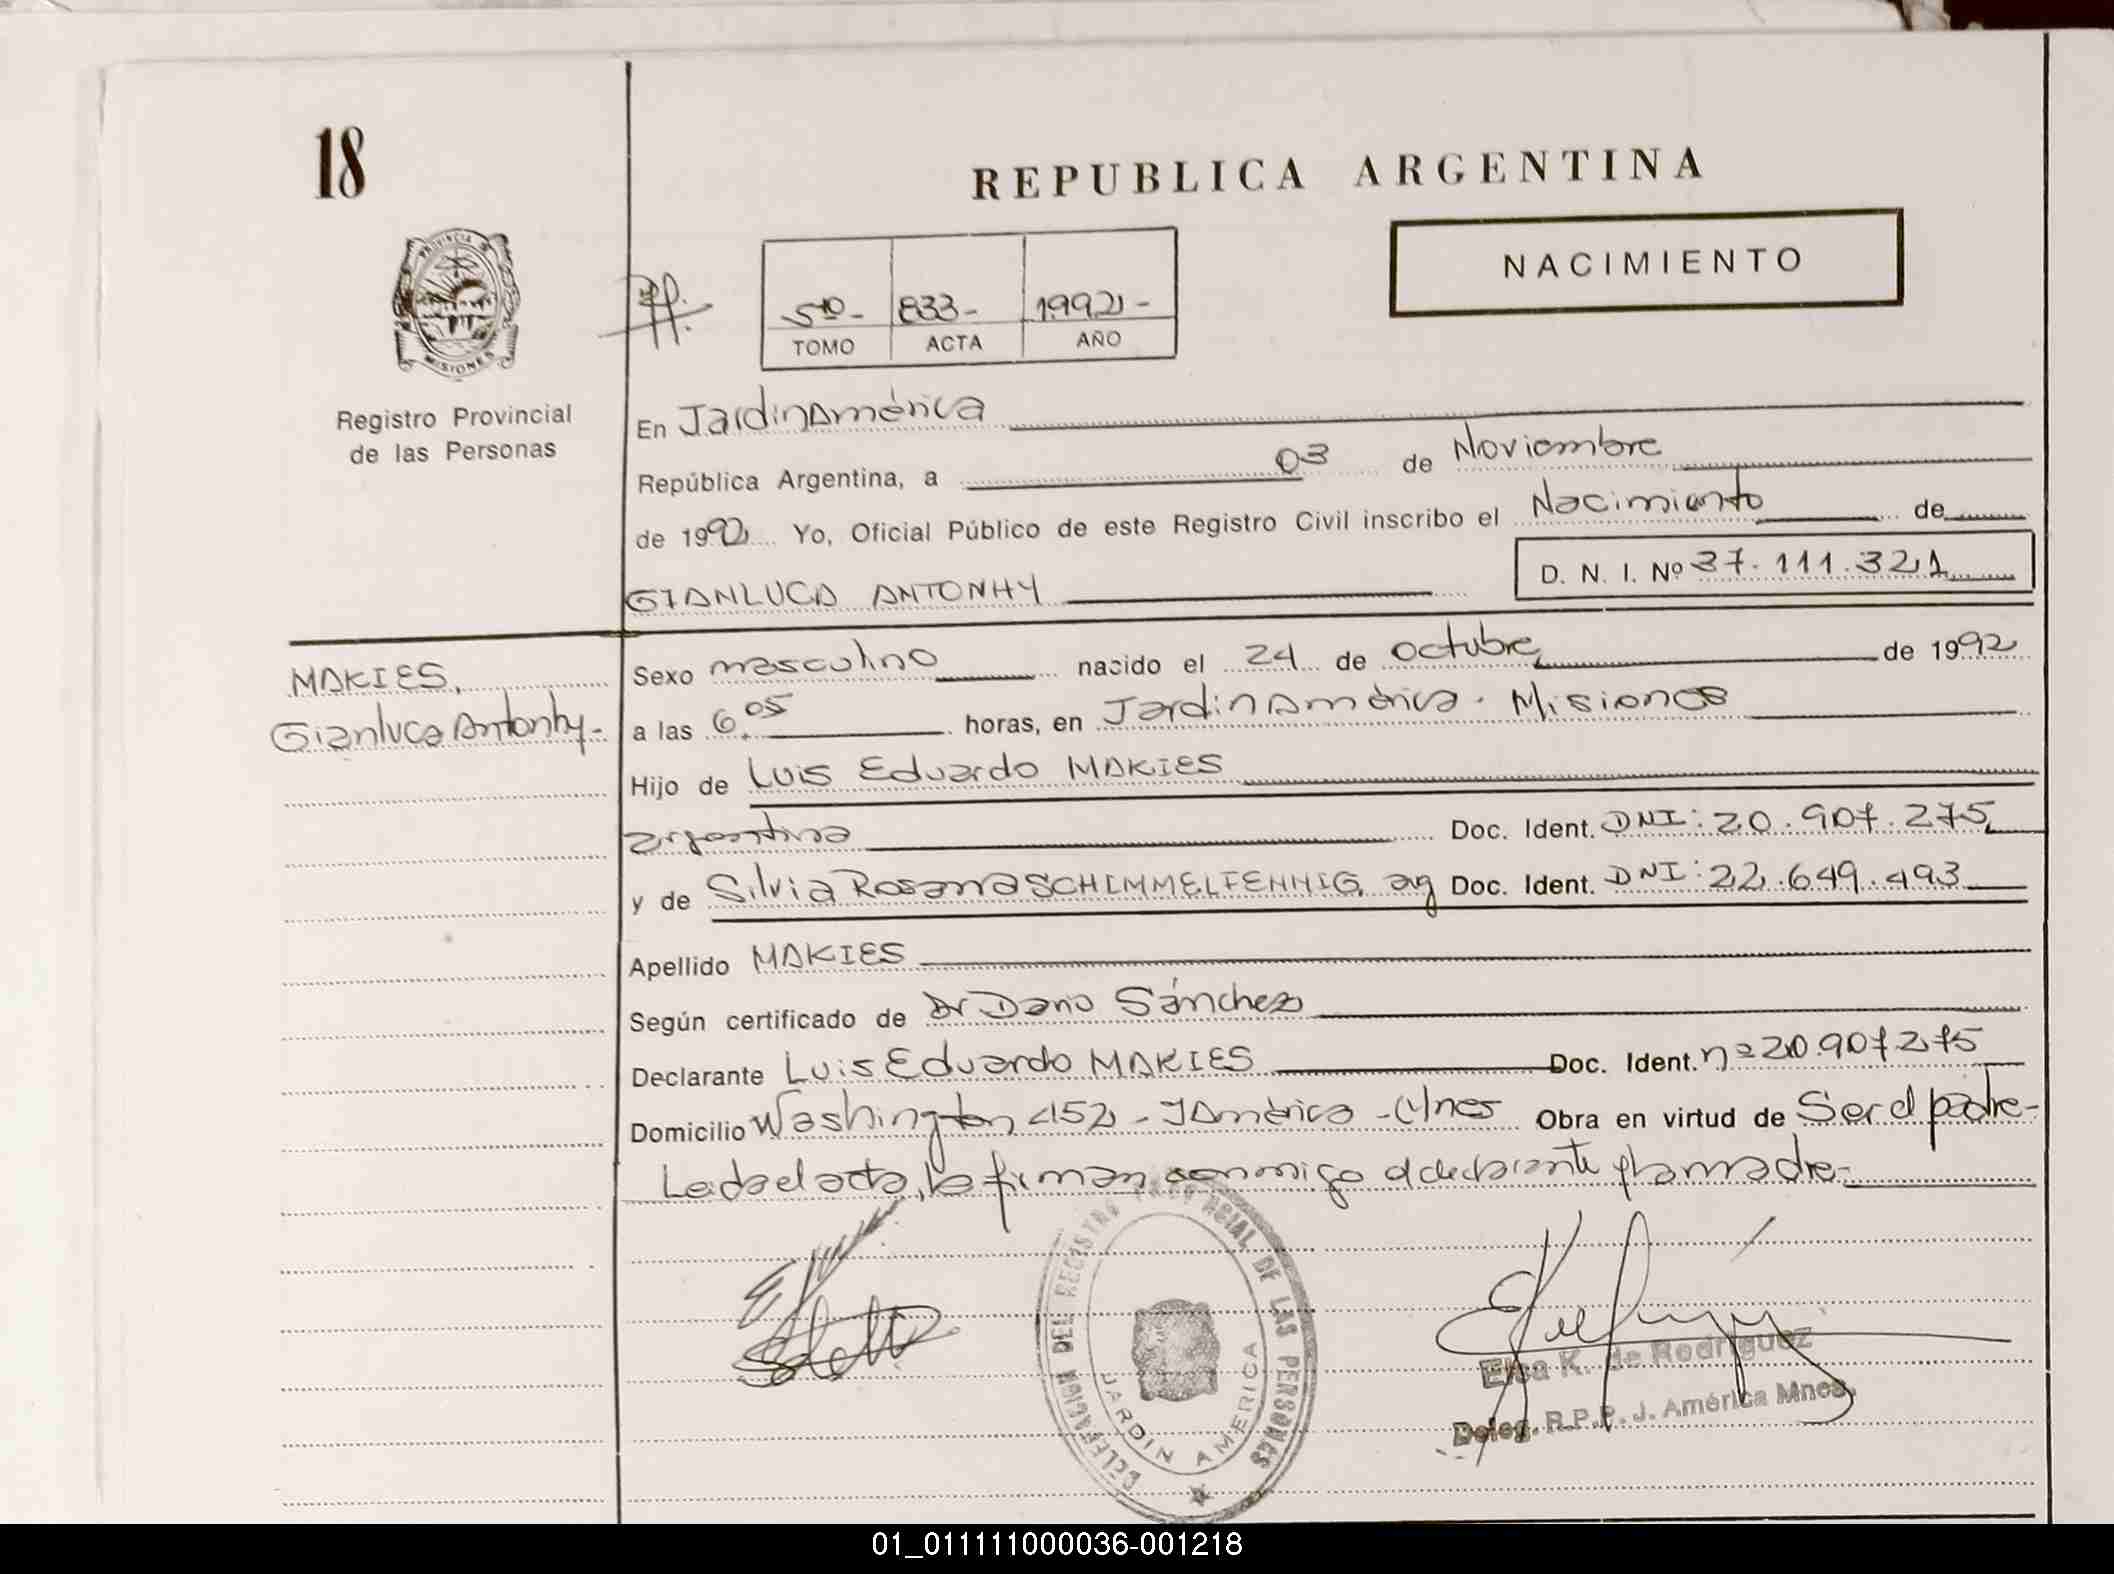 18
REPUBLICA ARGENTINA
NACIMIENTO
PROVINCIA DE
MISIONES
5to- 833- 1992-
TOMO ACTA AÑO
Registro Provincial
de las Personas
En Jardín América
República Argentina, a 03 de Noviembre
de 1992 Yo, Oficial Público de este Registro Civil inscribo el Nacimiento de
GIANLUCA ANTONHY
D. N. I. Nº 37.111.321
MAKIES,
Gianluca Antonhy-
Sexo masculino nacido el 24 de octubre de 1992
a las 6,05 horas, en Jardín América. Misiones
Hijo de Luis Eduardo MAKIES
argentino Doc. Ident. DNI: 20.907.275
y de Silvia Rosana SCHIMMELFENNIG, arg Doc. Ident. DNI: 22.649.493
Apellido MAKIES
Según certificado de Dr Dario Sánchez
Declarante Luis Eduardo MAKIES Doc. Ident. nº 20.907275
Domicilio Washington 452 - J América - Mnes Obra en virtud de Ser el padre-
Leida el acta, la firman conmigo el declarante y la madre-
DELEGACION DEL REGISTRO PROVINCIAL DE LAS PERSONAS
JARDIN AMERICA
Elsa K. de Rodriguez
Deleg. R.P.P. J. América Mnes.
01_011111000036-001218